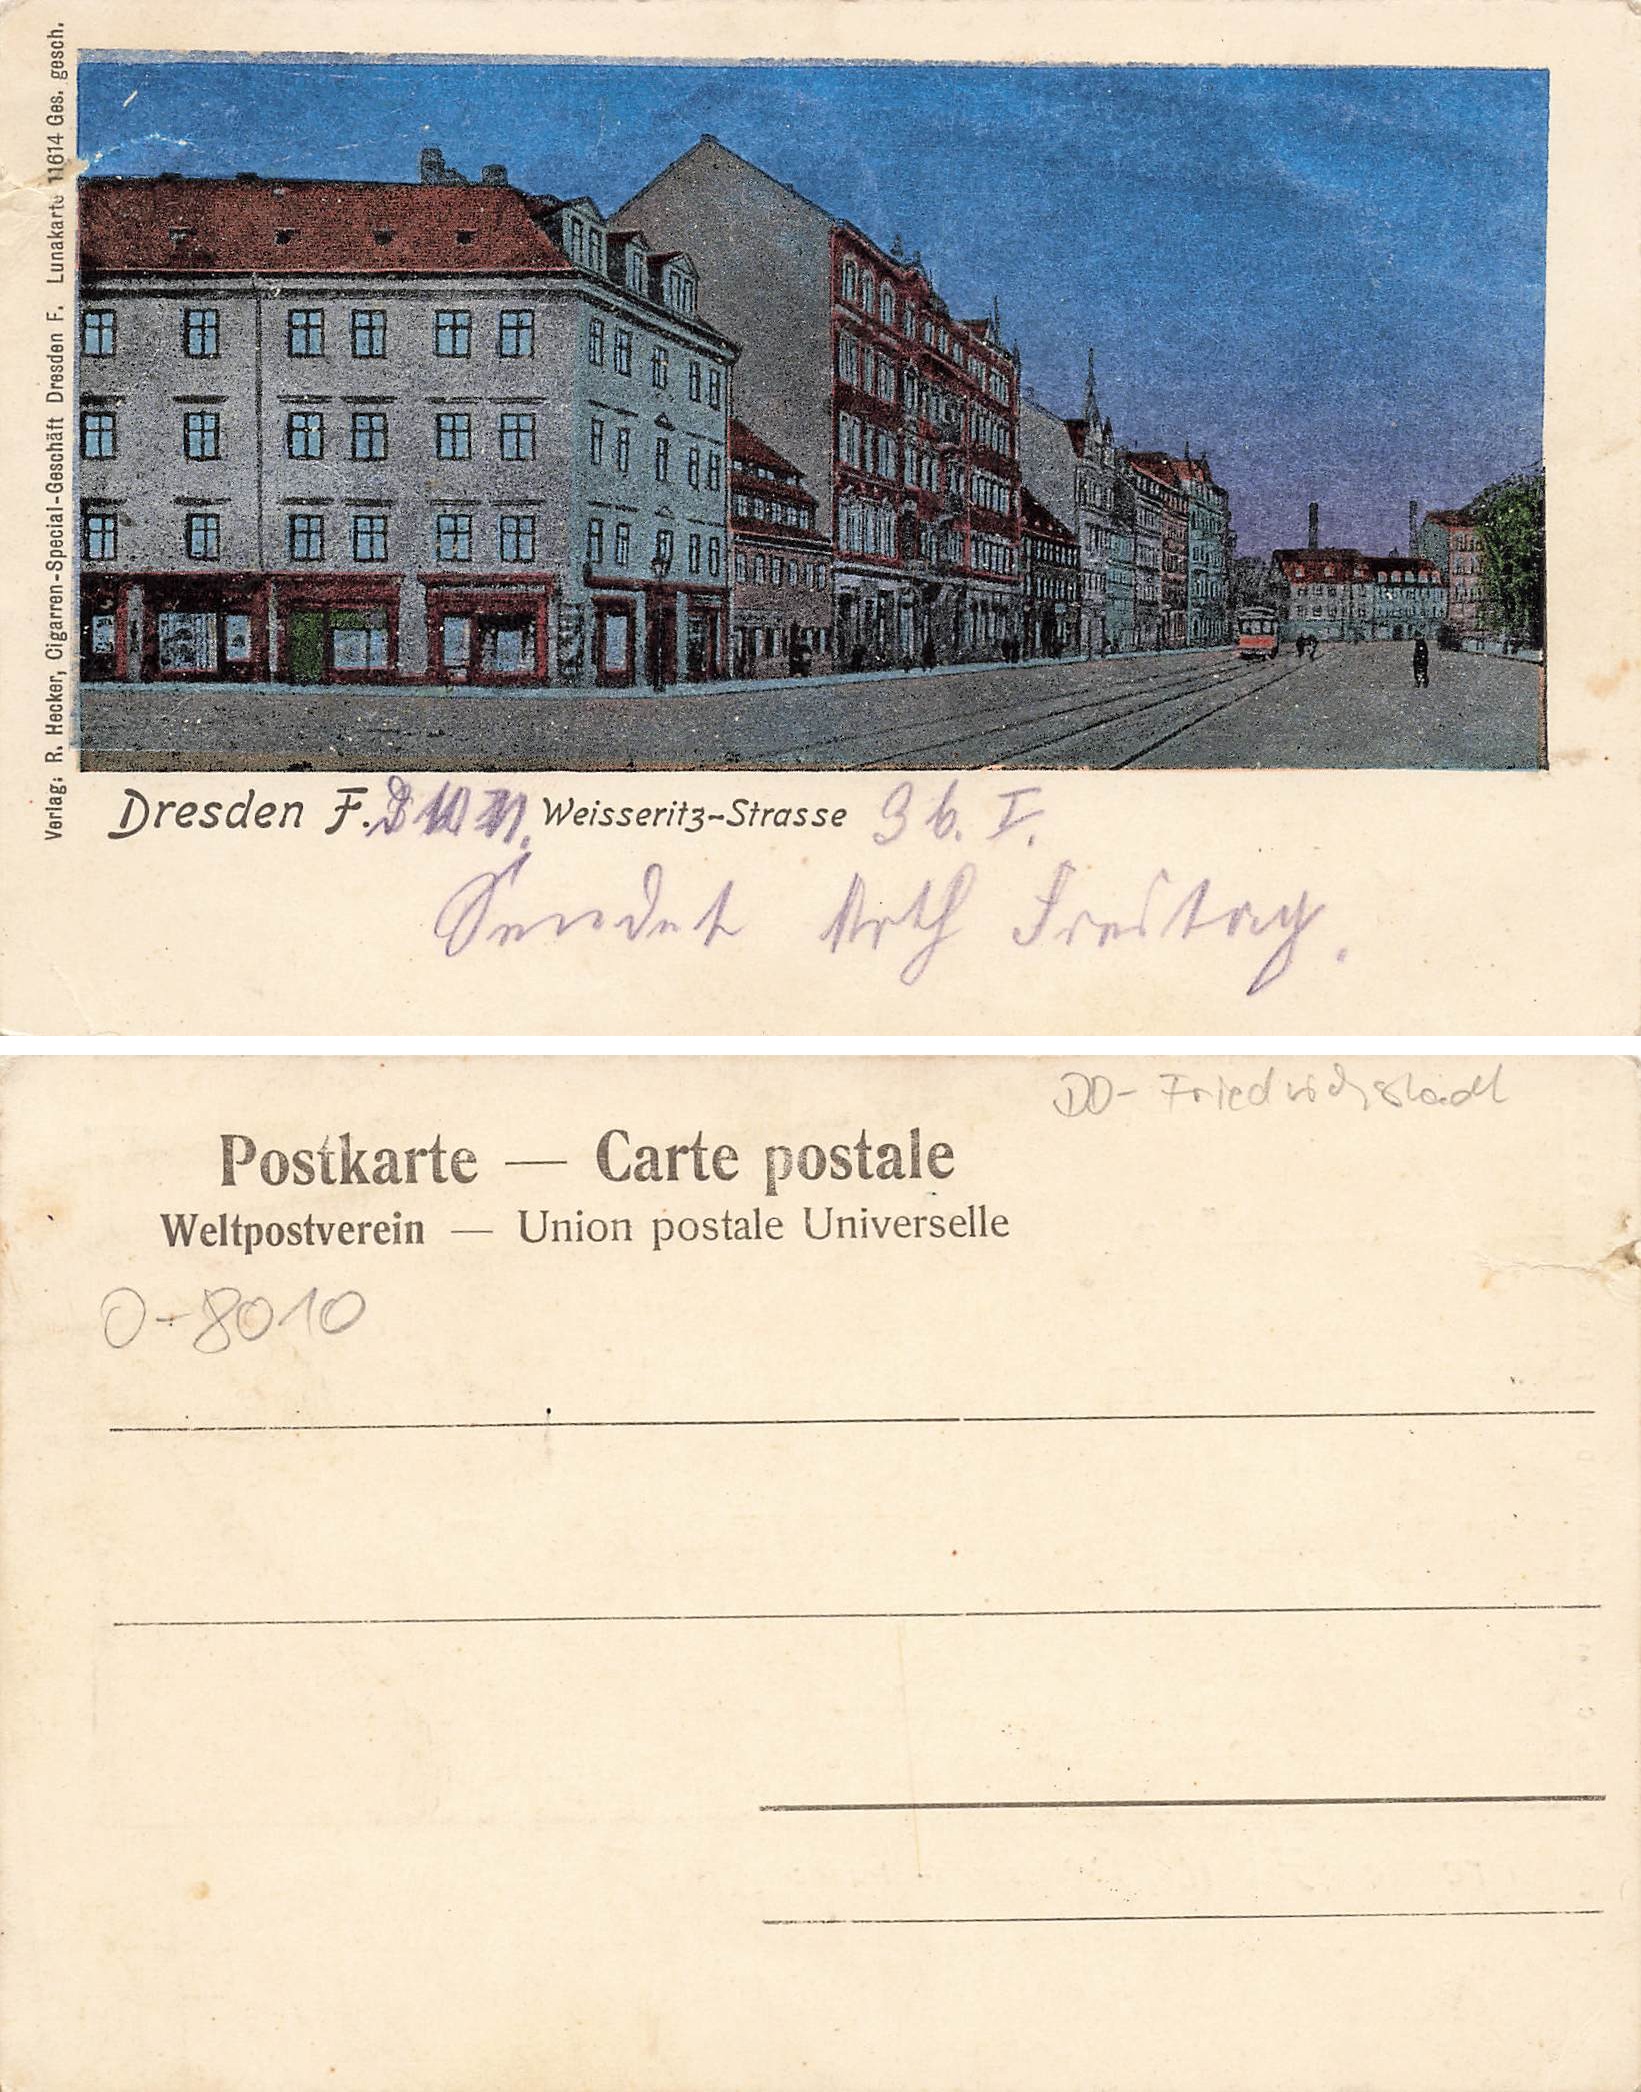 Verlag: R. Hecker, Cigarren-Special-Geschäft Dresden F. Lunakarte 11614 Ges. gesch.
Dresden F. Weisseritz-Strasse 36. I.
Sendet Arth Freitag.
DD- Friedrichstadt
Postkarte — Carte postale
Weltpostverein — Union postale Universelle
O-8010